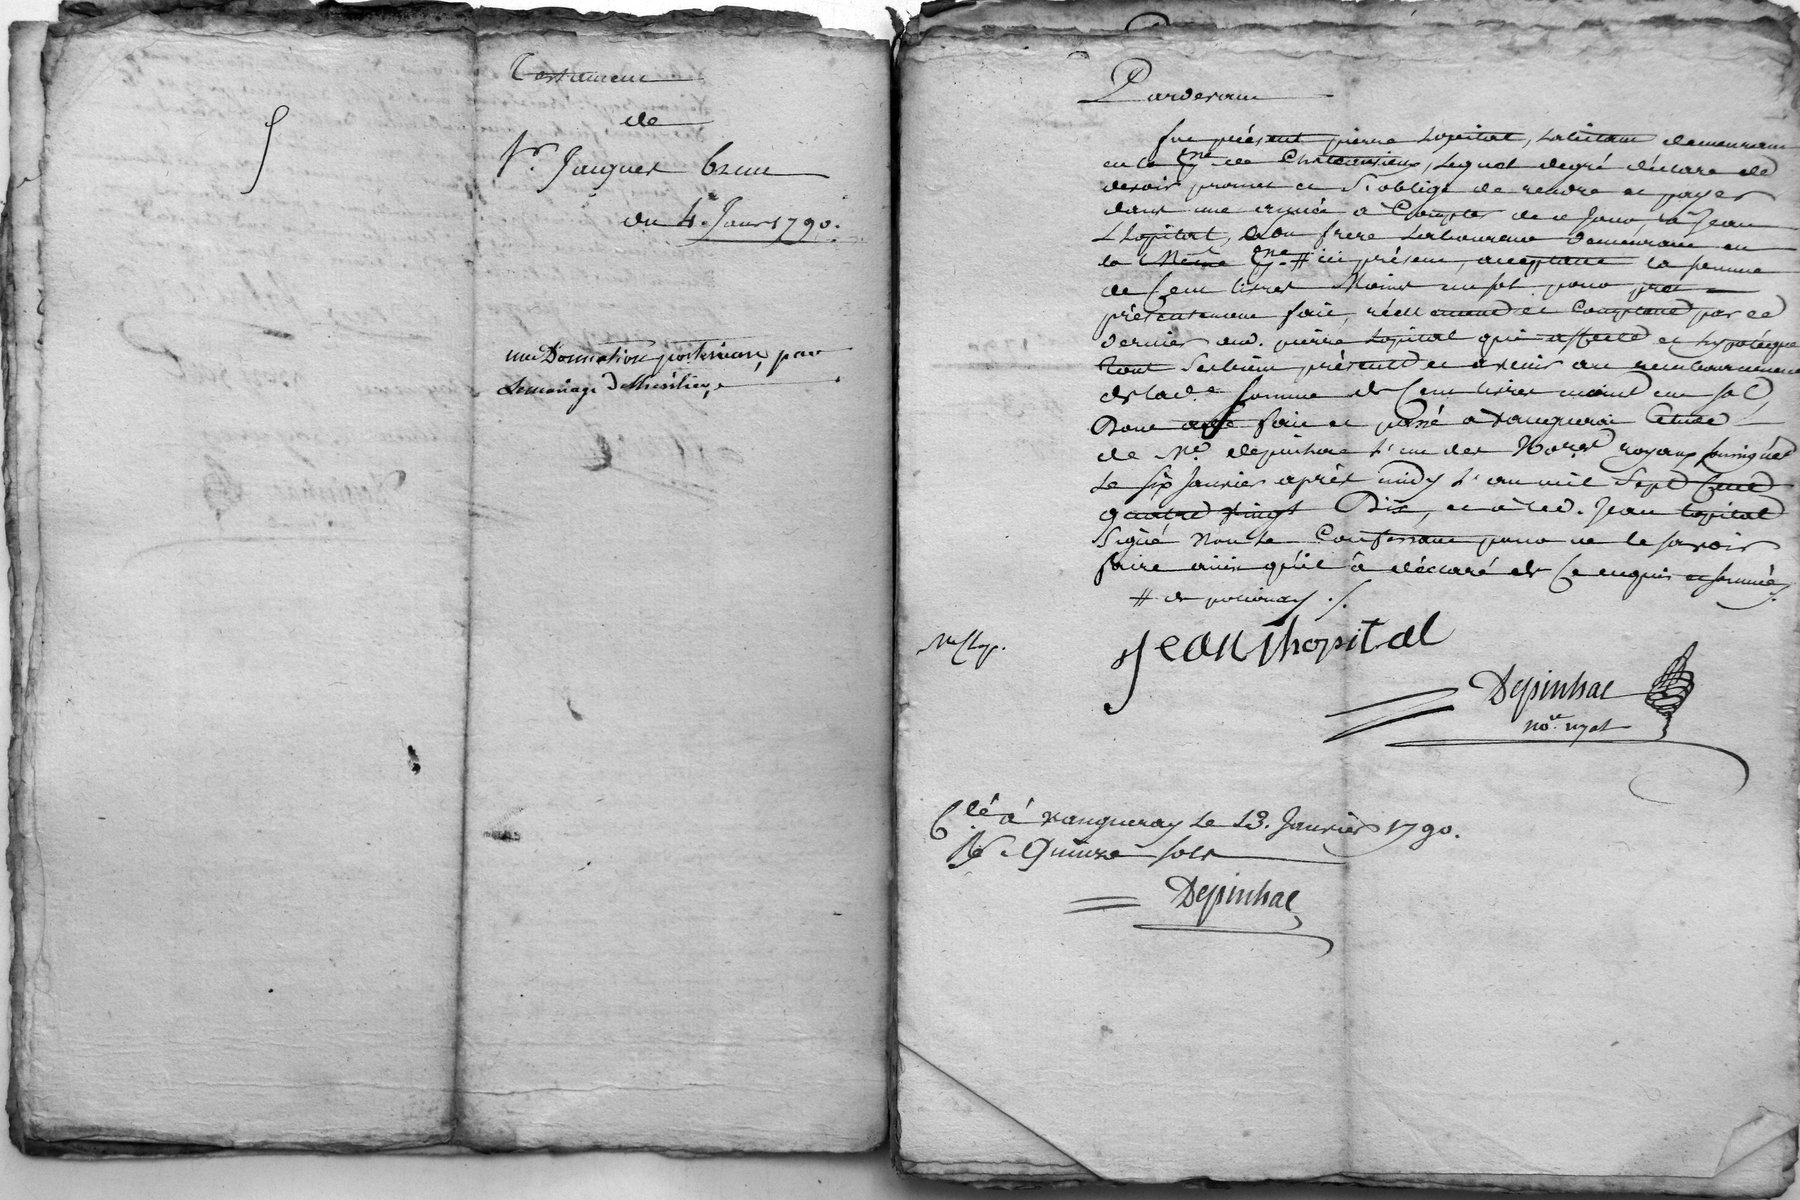 Testament
de
Sr. Jacques Brun
du 4. Janv 1790.
une Donnation posterieure, par
le mariage
Pardevant
fut présent pierre Lopital, habitant demeurant
en la psse de Chateauvieux, lequel de gré déclare de
devoir, promet et s'oblige de rendre et payer
dans une année à Compter de ce jour, à Jean
Lhopital, son frere Laboureur demeurant en
la même psse # ici présent, acceptant la somme
de Cent livres Moins un sol pour pret
présentement fait, réellement et Comptant par ce
dernier aud. pierre Lopital qui affecte et hypotéque
tout ses biens présents et avenir au remboursement
de lad.e somme de Cent livres moins un sol,
Dont acte fait et passé à Vaugneray Etude
de Me. depinhac l'un des Nores. royaux soussignés
Le six Janvier après midy l'an mil Sept Cent
quatre vingt Dix, et a led. Jean Lopital
Signé Non le Confessant pour ne le savoir
faire ainsi qu'il a déclaré de Ce enquis et sommés
# de pollionay ./.
Jean lhopital
Depinhac
nore. royal
Clé à Vaugneray Le 13. Janvier 1790.
R Quinze sols
Depinhac